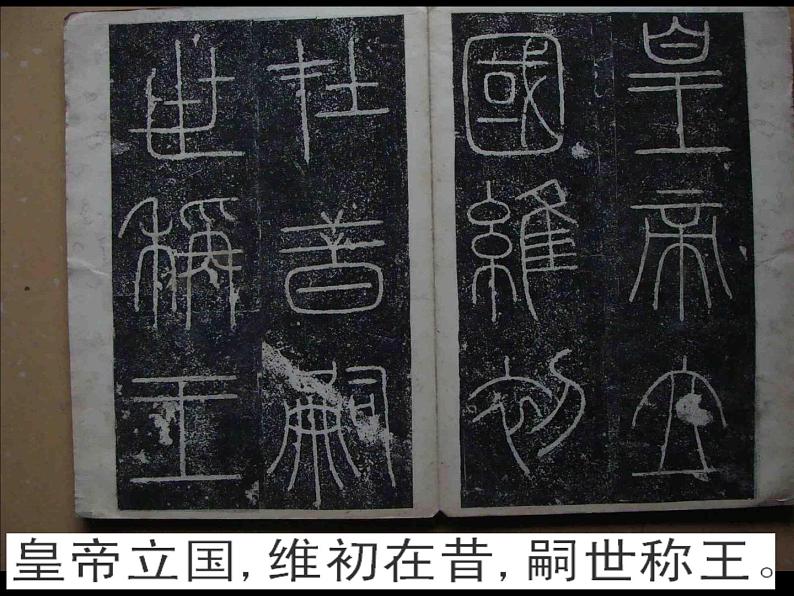 皇帝立
國維初
在昔嗣
世稱王
皇帝立国,维初在昔,嗣世称王。